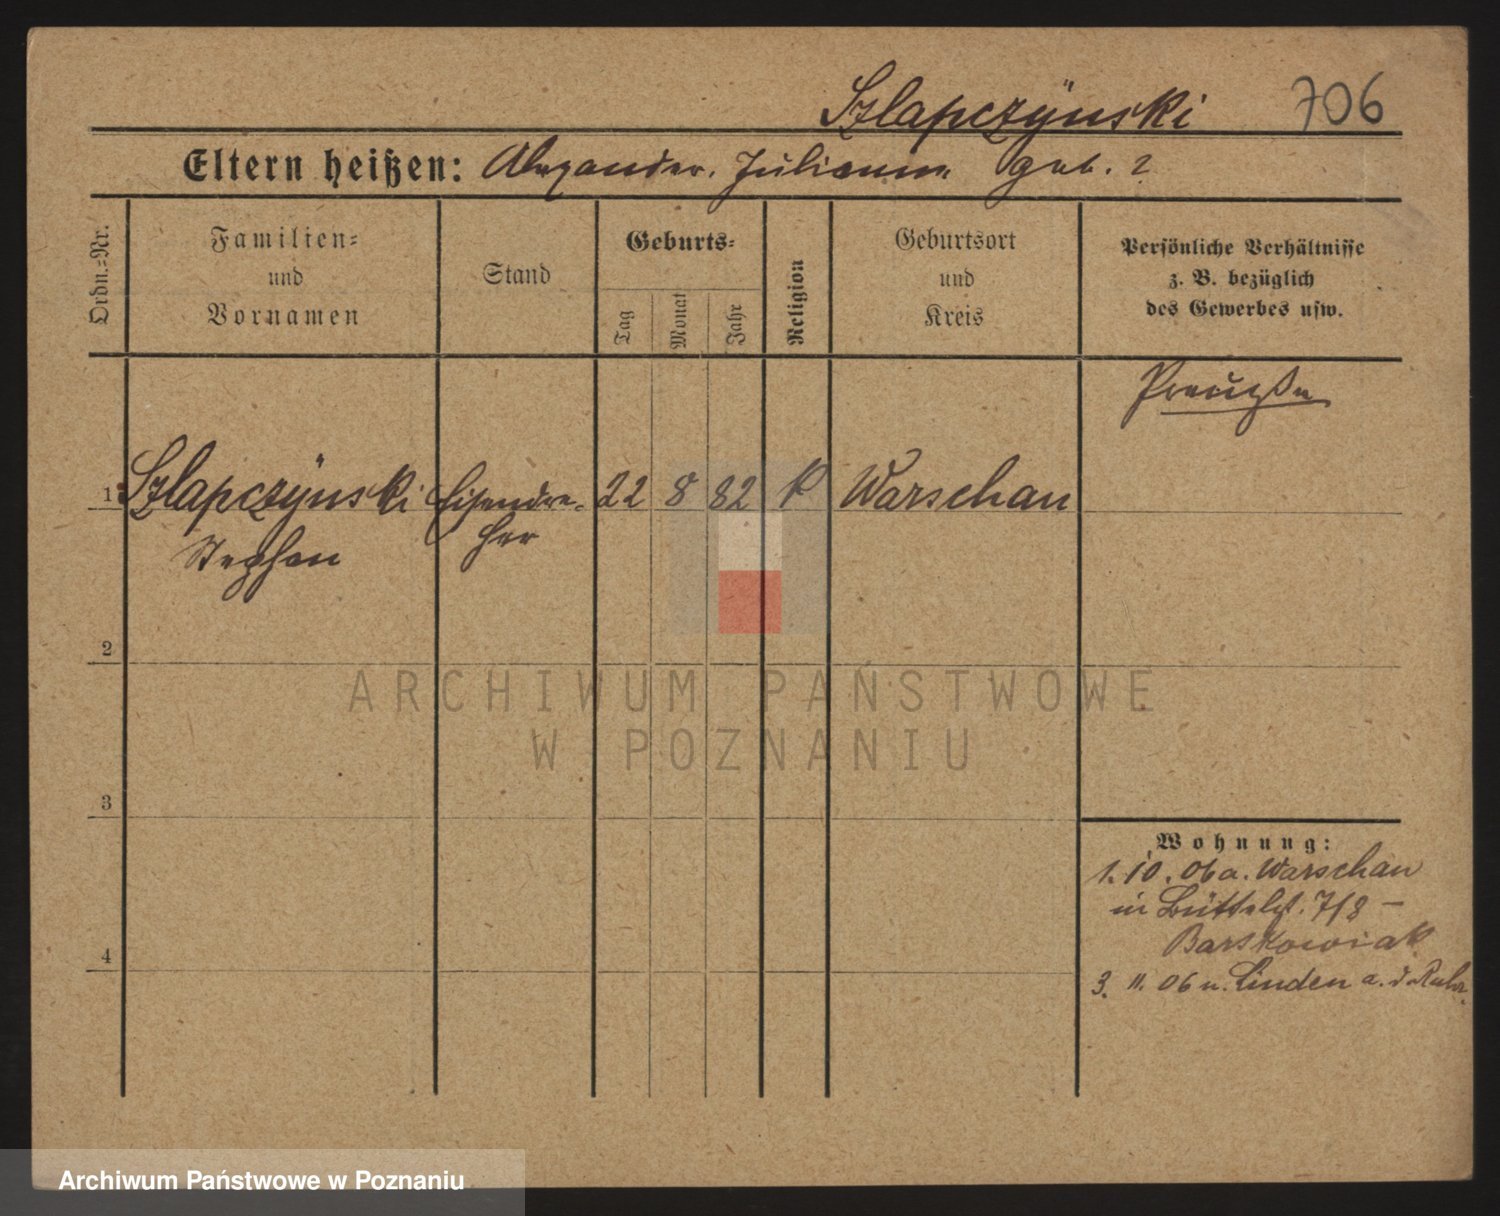 Szlapczÿnski 706
Eltern heißen: Alexander. Julianna geb. ?
Ordn.-Nr.
Familien-
und
Vornamen
Stand
Geburts-
Tag
Monat
Jahr
Religion
Geburtsort
und
Kreis
Persönliche Verhältnisse
z. B. bezüglich
des Gewerbes usw.
Preuße
1 Szlapczÿnski Eisendre- 22 8 82 K Warschau
Stephan her
2
3
4
Wohnung:
1. 10. 06 a. Warschau
in Büttelst. 7/8 –
Barskowiak
3. 11. 06 n. Linden a. d. Ruhr.
ARCHIWUM PAŃSTWOWE
W POZNANIU
Archiwum Państwowe w Poznaniu